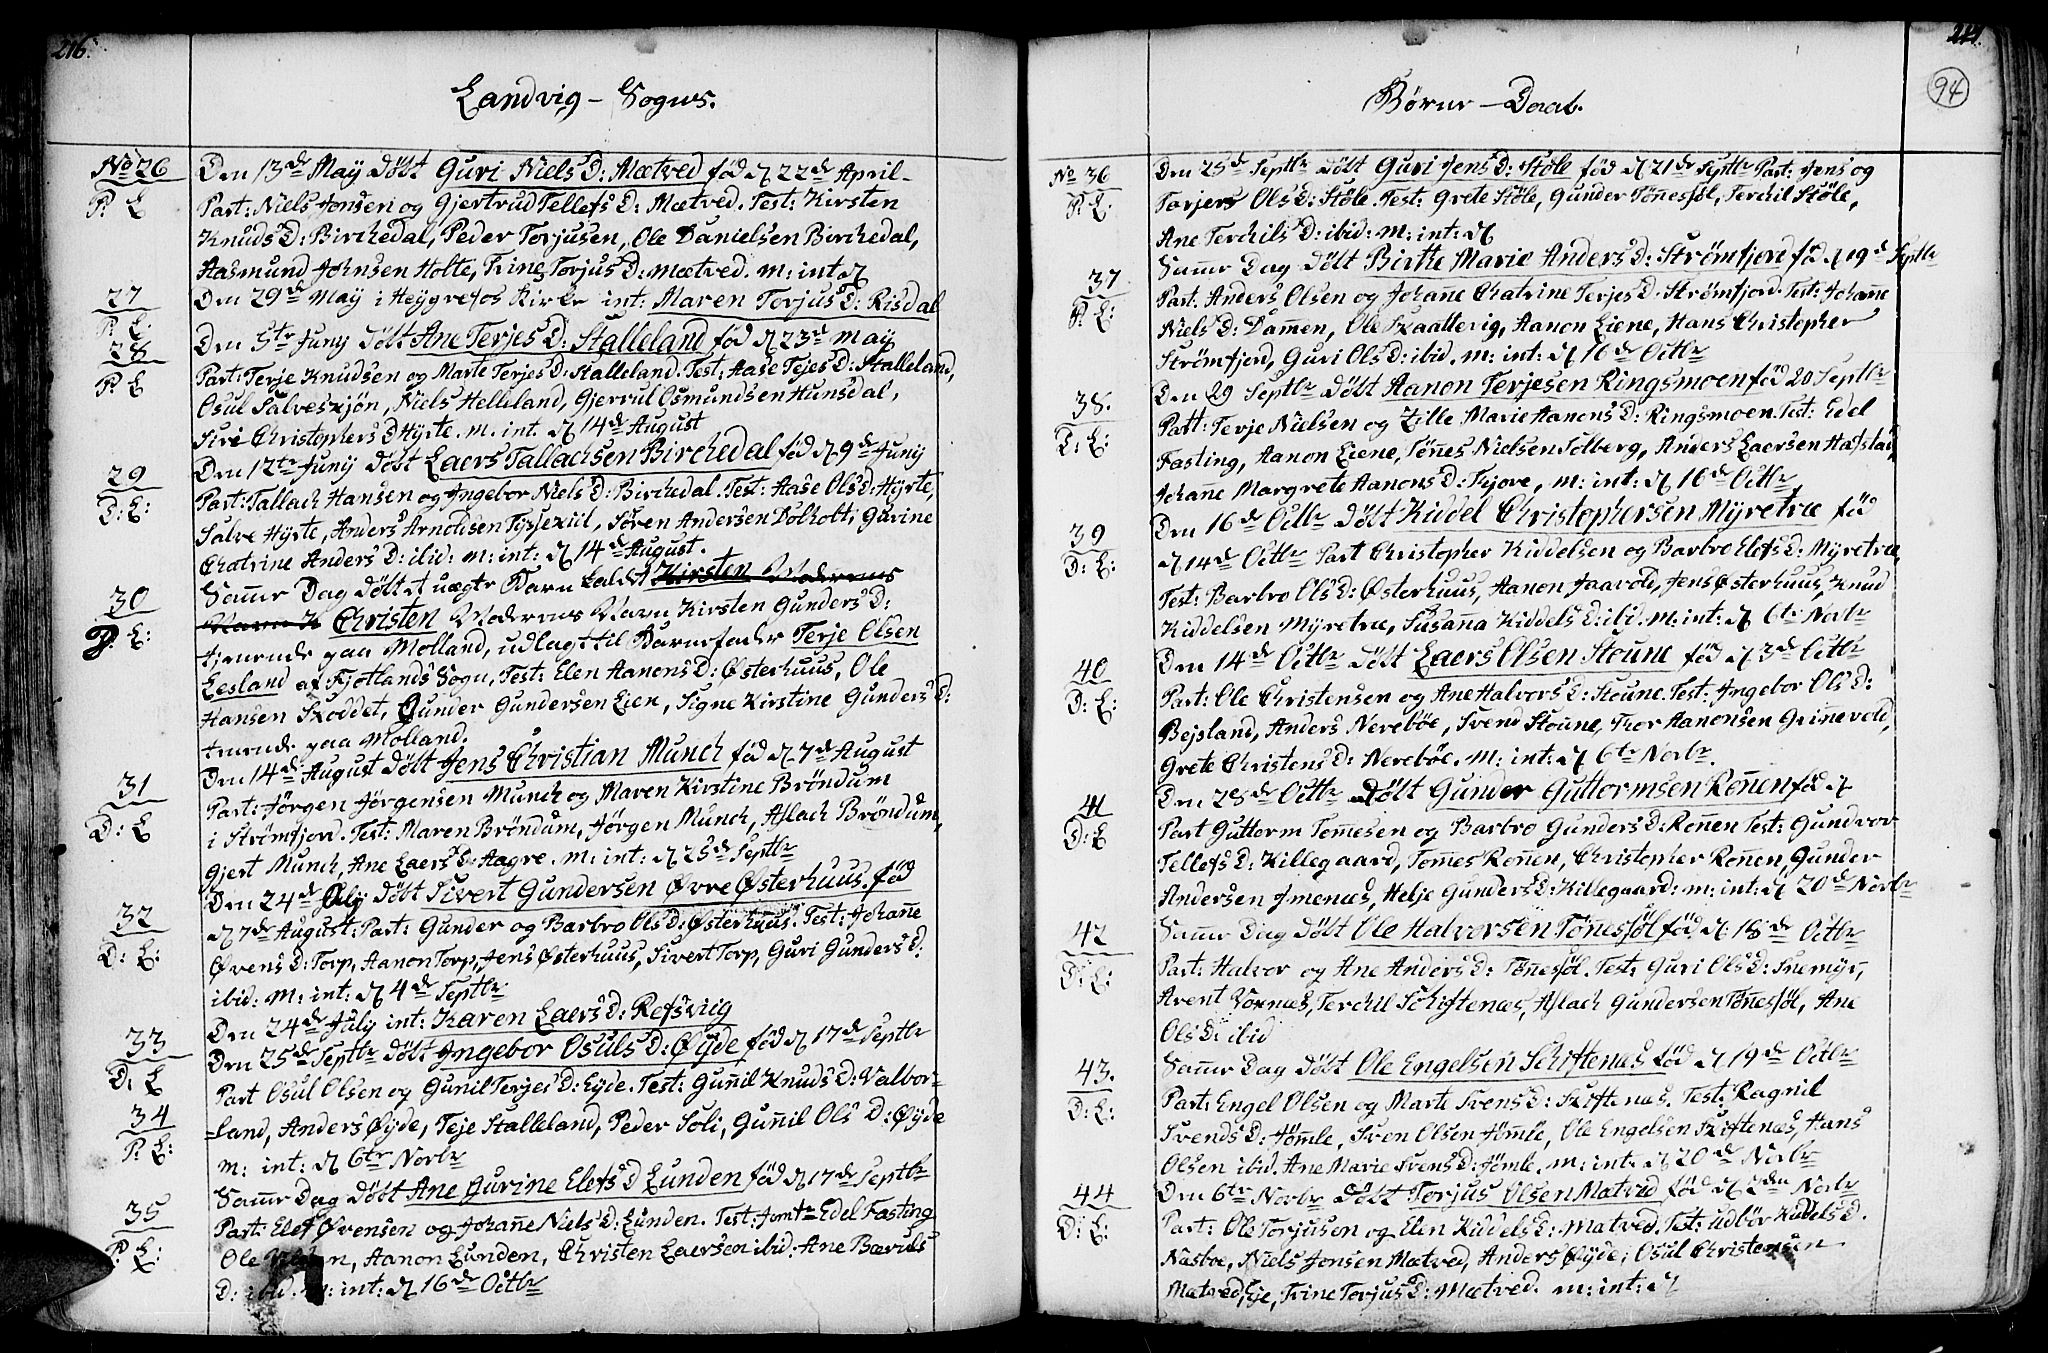 216.
Landvig - Sogns.
No 26
P: L
Den 13de May Döbt Guri Niels D: Mætved föd d 22de April
Part: Niels Jonsen og Gjertrud Tellefs D: Mætved. Test: Kirsten
Knuds D: Birchedal, Peder Torjusen, Ole Danielsen Birchedal,
Aasmund Johnsen Holte, Trine Torjus D: Mætved. m: int d
27
P: L:
Den 29de May i Heÿgrefos Kirke int: Maren Torjus D: Risdal
28
P: L
Den 5te Junÿ Döbt Ane Terjes D: Stalleland föd d 23de May
Part: Terje Knudsen og Marte Terjes D: Stalleland. Test: Aase Tejes D: Stalleland,
Osul Salveskjön, Niels Helleland, Gjerrul Osmundsen Hunsdal,
Siri Christophers D Hÿrte. m. int. d 14de August
29
D: L:
Den 12te Junÿ Döbt Laers Tallachsen Birchedal föd d 9de Junÿ
Part: Tallach Hansen og Ingebor Niels D: Birchedal. Test: Aase Ols D: Hÿrte,
Salve Hÿrte, Anders Arnoldsen, Sören Andersen Dolholt, Gurine
Chatrine Anders D: ibid: m: int: d 14de August.
30
P: L:
Samme Dag Döbt et uægte Barn kaldt Kirsten Moderens
Navn K Christen Moderens Navn Kirsten Gunders D:
tjenende paa Molland, udlagt til Barnefader Terje Olsen
Lesland af Fjotlands Sogn, Test: Elen Aanons D: Østerhuus, Ole
Hansen Skoddet, Gunder Gundersen Lien, Signe Kirstine Gunders D:
tienende paa Molland.
31
D: L
Den 14de August Döbt Jens Christian Munch föd d 7de August
Part: Jörgen Jörgensen Munch og Maren Kirstine Bröndum
i Strömfjord. Test: Maren Bröndum, Jörgen Munch, Aslach Bröndum,
Gjert Munch, Ane Laers D: Aagre. m: int: d 25de Septbr
32
D: L:
Den 24de July Döbt Sivert Gundersen Øvre Østerhuus. föd
d 7de August: Part: Gunder og Barbro Ols D: Østerhuus. Test: Johañe
Øvens D: Torp, Aanon Torp, Jens Østerhuus, Sivert Torp, Guri Gunders D:
ibid: m: int: d 4de Septbr
33
D: L
Den 24de July int: Karen Laers D: Refsviig
34
P: L:
Den 25de Septbr Döbt Ingebor Osuls D: Øÿde föd d 17de Septbr
Part Osul Olsen og Gunil Terjes D: Eyde. Test: Guñil Knuds D: Valbor-
-land, Anders Øÿde, Teje Stalleland, Peder Soli, Guñil Ols D: Øÿde
m: int: d 6te Novbr
35
P: L:
Samme Dag Döbt Ane Gurine Elefs D Lunden föd d 17de Septbr
Part: Elef Øvensen og Johañe Niels D: Lunden. Test: Jomfr Edel Fasting
Ole, Aanon Lunden, Christen Laersen ibid: Ane Bæruls
D: ibid. m: int: d 16de Octbr
217.
94
Börne - Daab.
No 36
P: L:
Den 25de Septbr Döbt Guri Jens D: Stöle föd d 21de Septbr Part: Jens og
Torjer Ols D: Stöle. Test: Grete Stöle, Gunder Töñesöl, Terchil Stöle,
Ane Terchils D: ibid: m: int: d
37
P: L:
Samme Dag Döbt Birthe Marie Anders D: Strömfjord föd d 19de Septbr
Part: Anders Olsen og Johañe Chatrine Terjes D: Strömfjord. Test: Johañe
Niels D: Dam̃en, Ole Skaatterig, Aanon Liene, Hans Christopher
Strömfjord, Guri Ols D: ibid. m: int: d 16de Octbr
38.
D: L:
Den 29 Septbr Döbt Aanon Terjesen Ringsmoen föd 20 Septbr
Part: Terje Nielsen og Zille Marie Aanons D: Ringsmoen. Test: Edel
Fasting, Aanon Liene, Töñes Nielsen Solberg, Anders Laersen Hafstad,
Johañe Margrete Aanons D: Fjore, m: int: d 16de Octbr
39
D: L:
Den 16de Octbr Döbt Kiddel Christophersen Mÿretræ föd
d 14de Octbr Part Christopher Kiddelsen og Barbro Elefs D: Mÿretræ,
Test: Barbro Ols D: Østerhuus, Aanon Jaavold, Jens Østerhuus, Knud
Kiddelsen Mÿretræ, Susaña Kiddels D: ibid. m: int: d 6te Novbr
40
D: L:
Den 14de Octbr Döbt Laers Olsen Stoune föd d 3de Octbr
Part: Ole Christensen og Ane Halvors D: Stoune. Test: Ingebor Ols D:
Bejsland, Anders Nereböe, Svend Stoune, Thor Aanonsen Griñevold,
Grete Christens D: Nereböe. m: int: d 6te Novbr.
41
D: L
Den 28de Octbr Döbt Gunder Guttormsen Roñen föd d
Part Guttorm Tom̃esen og Barbro Gunders D: Roñen Test: Gundvor
Tellefs D: Killegaard, Tom̃es Roñen, Christopher Roñen, Gunder
Andersen Imenæs, Helje Gunders D: Killegaard: m: int: d 20de Novbr
42
D: L:
Samme Dag Döbt Ole Halvorsen Töñesöl föd d 18de Octbr
Part: Halvor og Ane Anders D: Töñesöl. Test: Guri Ols D: Snemÿr,
Arent Voxnæs, Terchil Schiftenæs, Aslach Gundersen Töñesöl, Ane
Ols D: ibid
43.
D: L:
Samme Dag Döbt Ole Engelsen Schiftenæs föd d 19de Octbr
Part: Engel Olsen og Marte Svens D: Skiftenæs. Test: Ragnil
Svends D: Jöm̃le, Sven Olsen Jöm̃le, Ole Engelsen Skiftenæs, Hans
Olsen ibid. Ane Marie Svens D: Jömle. m: int: d 20de Novbr
44
D: L:
Den 6te Novbr Döbt Torjus Olsen Mætved föd d 2den Novbr
Part: Ole Torjusen og Elen Kiddels D: Mætved. Test: Udbör Kiddels D.
Næsboe, Niels Jonsen Mætved, Anders Øÿde, Osul Christensen
Mætved, Eje, Trine Torjus D: Mætved. m: int: d